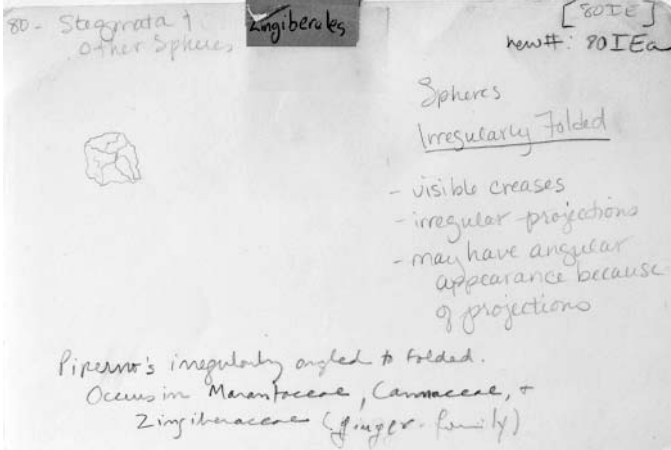 80 - Stegmata &
Other Spheres
Zingiberales
[80IE]
new#: 80IEa
Spheres
Irregularly Folded
- visible creases
- irregular projections
- may have angular
appearance because
of projections
Piperno's irregularly angled to folded.
Occurs in Marantaceae, Cannaceae, &
Zingiberaceae (ginger family)